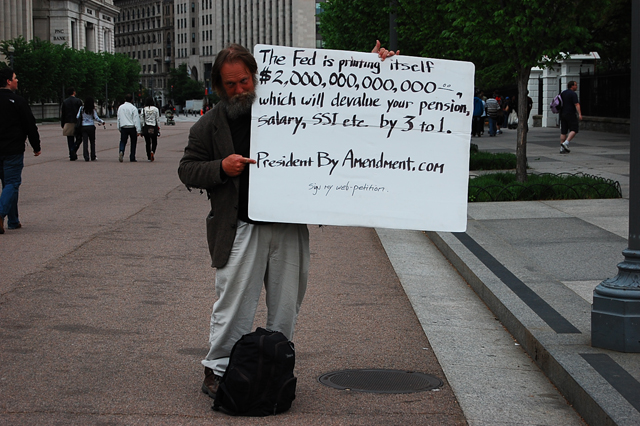 PNC
BANK
The Fed is printing itself
$2,000,000,000,000.00,
which will devalue your pension,
salary, SSI etc. by 3 to 1.
President By Amendment.com
Sign my web-petition.